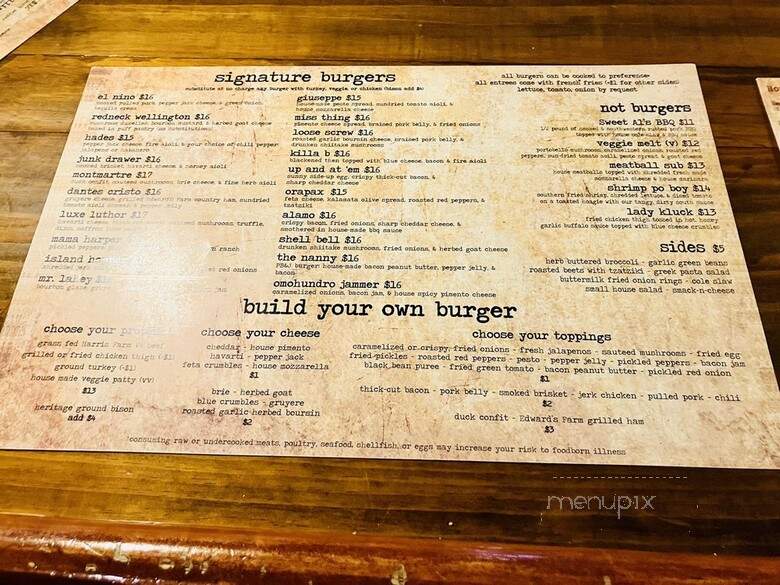 signature burgers
substitute at no charge any burger with turkey, veggie or chicken (bison add $4)
el nino $16
roasted pulled pork, pepper jack cheese, & green onion,
tequila crema
redneck wellington $16
mushrooms & herbed goat cheese
baked in puff pastry (no substitutions)
hades $15
pepper jack cheese fire aioli & your choice of chili pepper
jalapeno or habanero
junk drawer $16
smoked brisket, havarti cheese & aioli
montmartre $17
duck confit, mushrooms, brie cheese & fine herb aioli
dantes cristo $16
gruyere cheese, grilled Farm country ham, sundried
tomato aioli & pepper jelly
luxe luthor $17
havarti cheese mushrooms, truffle,
mama harper
pickled peppers ranch
island
shredded jerk red onions
mr. lakey
bourbon glaze
giuseppe $15
house-made pesto spread, sundried tomato aioli, &
house mozzarella cheese
miss thing $16
pimento cheese spread, brained pork belly, & fried onions
loose screw $16
roasted garlic boursin cheese, brained pork belly, &
drunken shiitake mushrooms
killa b $16
blackened then topped with blue cheese, bacon & fire aioli
up and at 'em $16
sunny side-up egg, crispy thick-cut bacon, &
sharp cheddar cheese
orapax $15
feta cheese, kalamata olive spread, roasted red peppers, &
tzatziki
alamo $16
crispy bacon, fried onions, sharp cheddar cheese, &
smothered in house-made bbq sauce
shell bell $16
drunken shiitake mushrooms, fried onions, & herbed goat cheese
the nanny $16
PB&J burger house-made bacon peanut butter, pepper jelly, &
bacon
omohundro jammer $16
caramelized onions, bacon jam, & house spicy pimento cheese
all burgers can be cooked to preference
all entrees come with french fries (+$1 for other sides)
lettuce, tomato, onion by request
not burgers
Sweet Al's BBQ $11
1/2 pound of smoked & northwestern rubbed pork BBQ
topped with house cole slaw & BBQ
veggie melt (v) $12
portobello mushrooms, caramelized onions, roasted red
peppers, sun-dried tomato aioli, pesto spread & goat cheese
meatball sub $13
house meatballs topped with shredded fresh made
mozzarella cheese & house marinara
shrimp po boy $14
southern fried shrimp, shredded lettuce, & diced tomato
on a toasted hoagie with our tangy, dirty south sauce
lady kluck $13
fried chicken thigh tossed in hot honey
garlic buffalo sauce topped with blue cheese crumbles
sides $5
herb buttered broccoli - garlic green beans
roasted beets with tzatziki - greek pasta salad
buttermilk fried onion rings - cole slaw
small house salad - smack-n-cheese
build your own burger
choose your protein
grass fed Harris Farm VA beef
grilled or fried chicken thigh (-$1)
ground turkey (-$1)
house made veggie patty (vv)
$13
heritage ground bison
add $4
choose your cheese
cheddar - house pimento
havarti - pepper jack
feta crumbles - house mozzarella
$1
brie - herbed goat
blue crumbles - gruyere
roasted garlic herbed boursin
$2
choose your toppings
caramelized or crispy fried onions - fresh jalapenos - sauteed mushrooms - fried egg
fried pickles - roasted red peppers - pesto - pepper jelly - pickled peppers - bacon jam
black bean puree - fried green tomato - bacon peanut butter - pickled red onion
$1
thick-cut bacon - pork belly - smoked brisket - jerk chicken - pulled pork - chili
$2
duck confit - Edward's Farm grilled ham
$3
*consuming raw or undercooked meats, poultry, seafood, shellfish, or eggs may increase your risk to foodborn illness
menupix